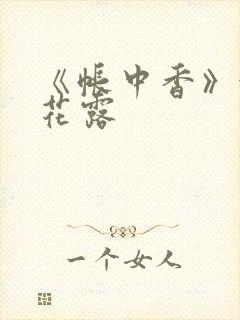 《帐中香》
花露
一个女人